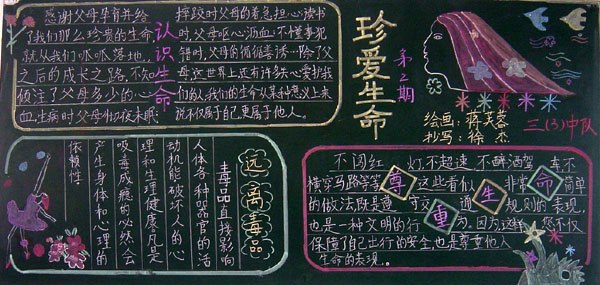 感谢父母孕育并给
了我们那么珍贵的生命
就从我们呱呱落地,
之后的成长之路,不知
倾注了父母多少的心
血,生病时父母彻夜未眠;
认识生命
摔跤时父母的着急担心读书
时,父母呕心沥血;不懂事犯
错时,父母的循循善诱…除了父
母,这世界上还有许多关心爱护我
们的人,我们的生命从某种意义上来
说,不仅属于自己更属于他人。
珍爱生命
第2期
绘画:蒋芙蓉
抄写:徐杰
三(3)中队
远离毒品
毒品直接影响
人体各种器官的活
动机能破坏人的心
理和生理健康凡是
吸毒成瘾的必然会
产生身体和心理的
依赖性
不闯红灯,不超速不醉酒驾车不
横穿马路等等,这些看似非常简单
的做法既是遵守交通规则的表现,
也是一种文明的行为。因为,这样您不仅
保障了自己出行的安全,也是尊重他人
生命的表现。
尊重生命